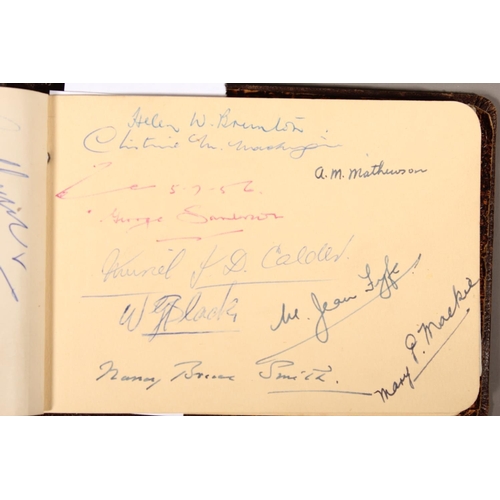 Helen W. Brunton
Christine M.
A. M. Mathewson
5-7-56
George Sanderson
Muriel J. D. Calder.
W Black
M. Jean Fyfe.
Nancy Bruce Smith.
Mary P. Mackie